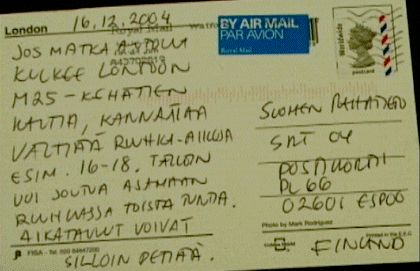 London
16.12.2004
Royal Mail
BY AIR MAIL
PAR AVION
Royal Mail
Worldwide
postcard
JOS MATKA AUTOLLA
KULKEE LONTOON
M25-KEHÄTIEN
KAUTTA, KANNATTAA
VÄLTTÄÄ RUUHKA-AIKOJA
ESIM. 16-18. TÄLLÖIN
VOI JOUTUA AJAMAAN
RUUHKASSA TOISTA TUNTIA.
AIKATAULUT VOIVAT
SILLOIN PETTÄÄ.
SUOMEN
SRT 04
POSTIKORTTI
PL 66
02601 ESPOO
FINLAND
Photo by Mark Rodriguez
Printed in the E.E.C
FISA - Tel. 020